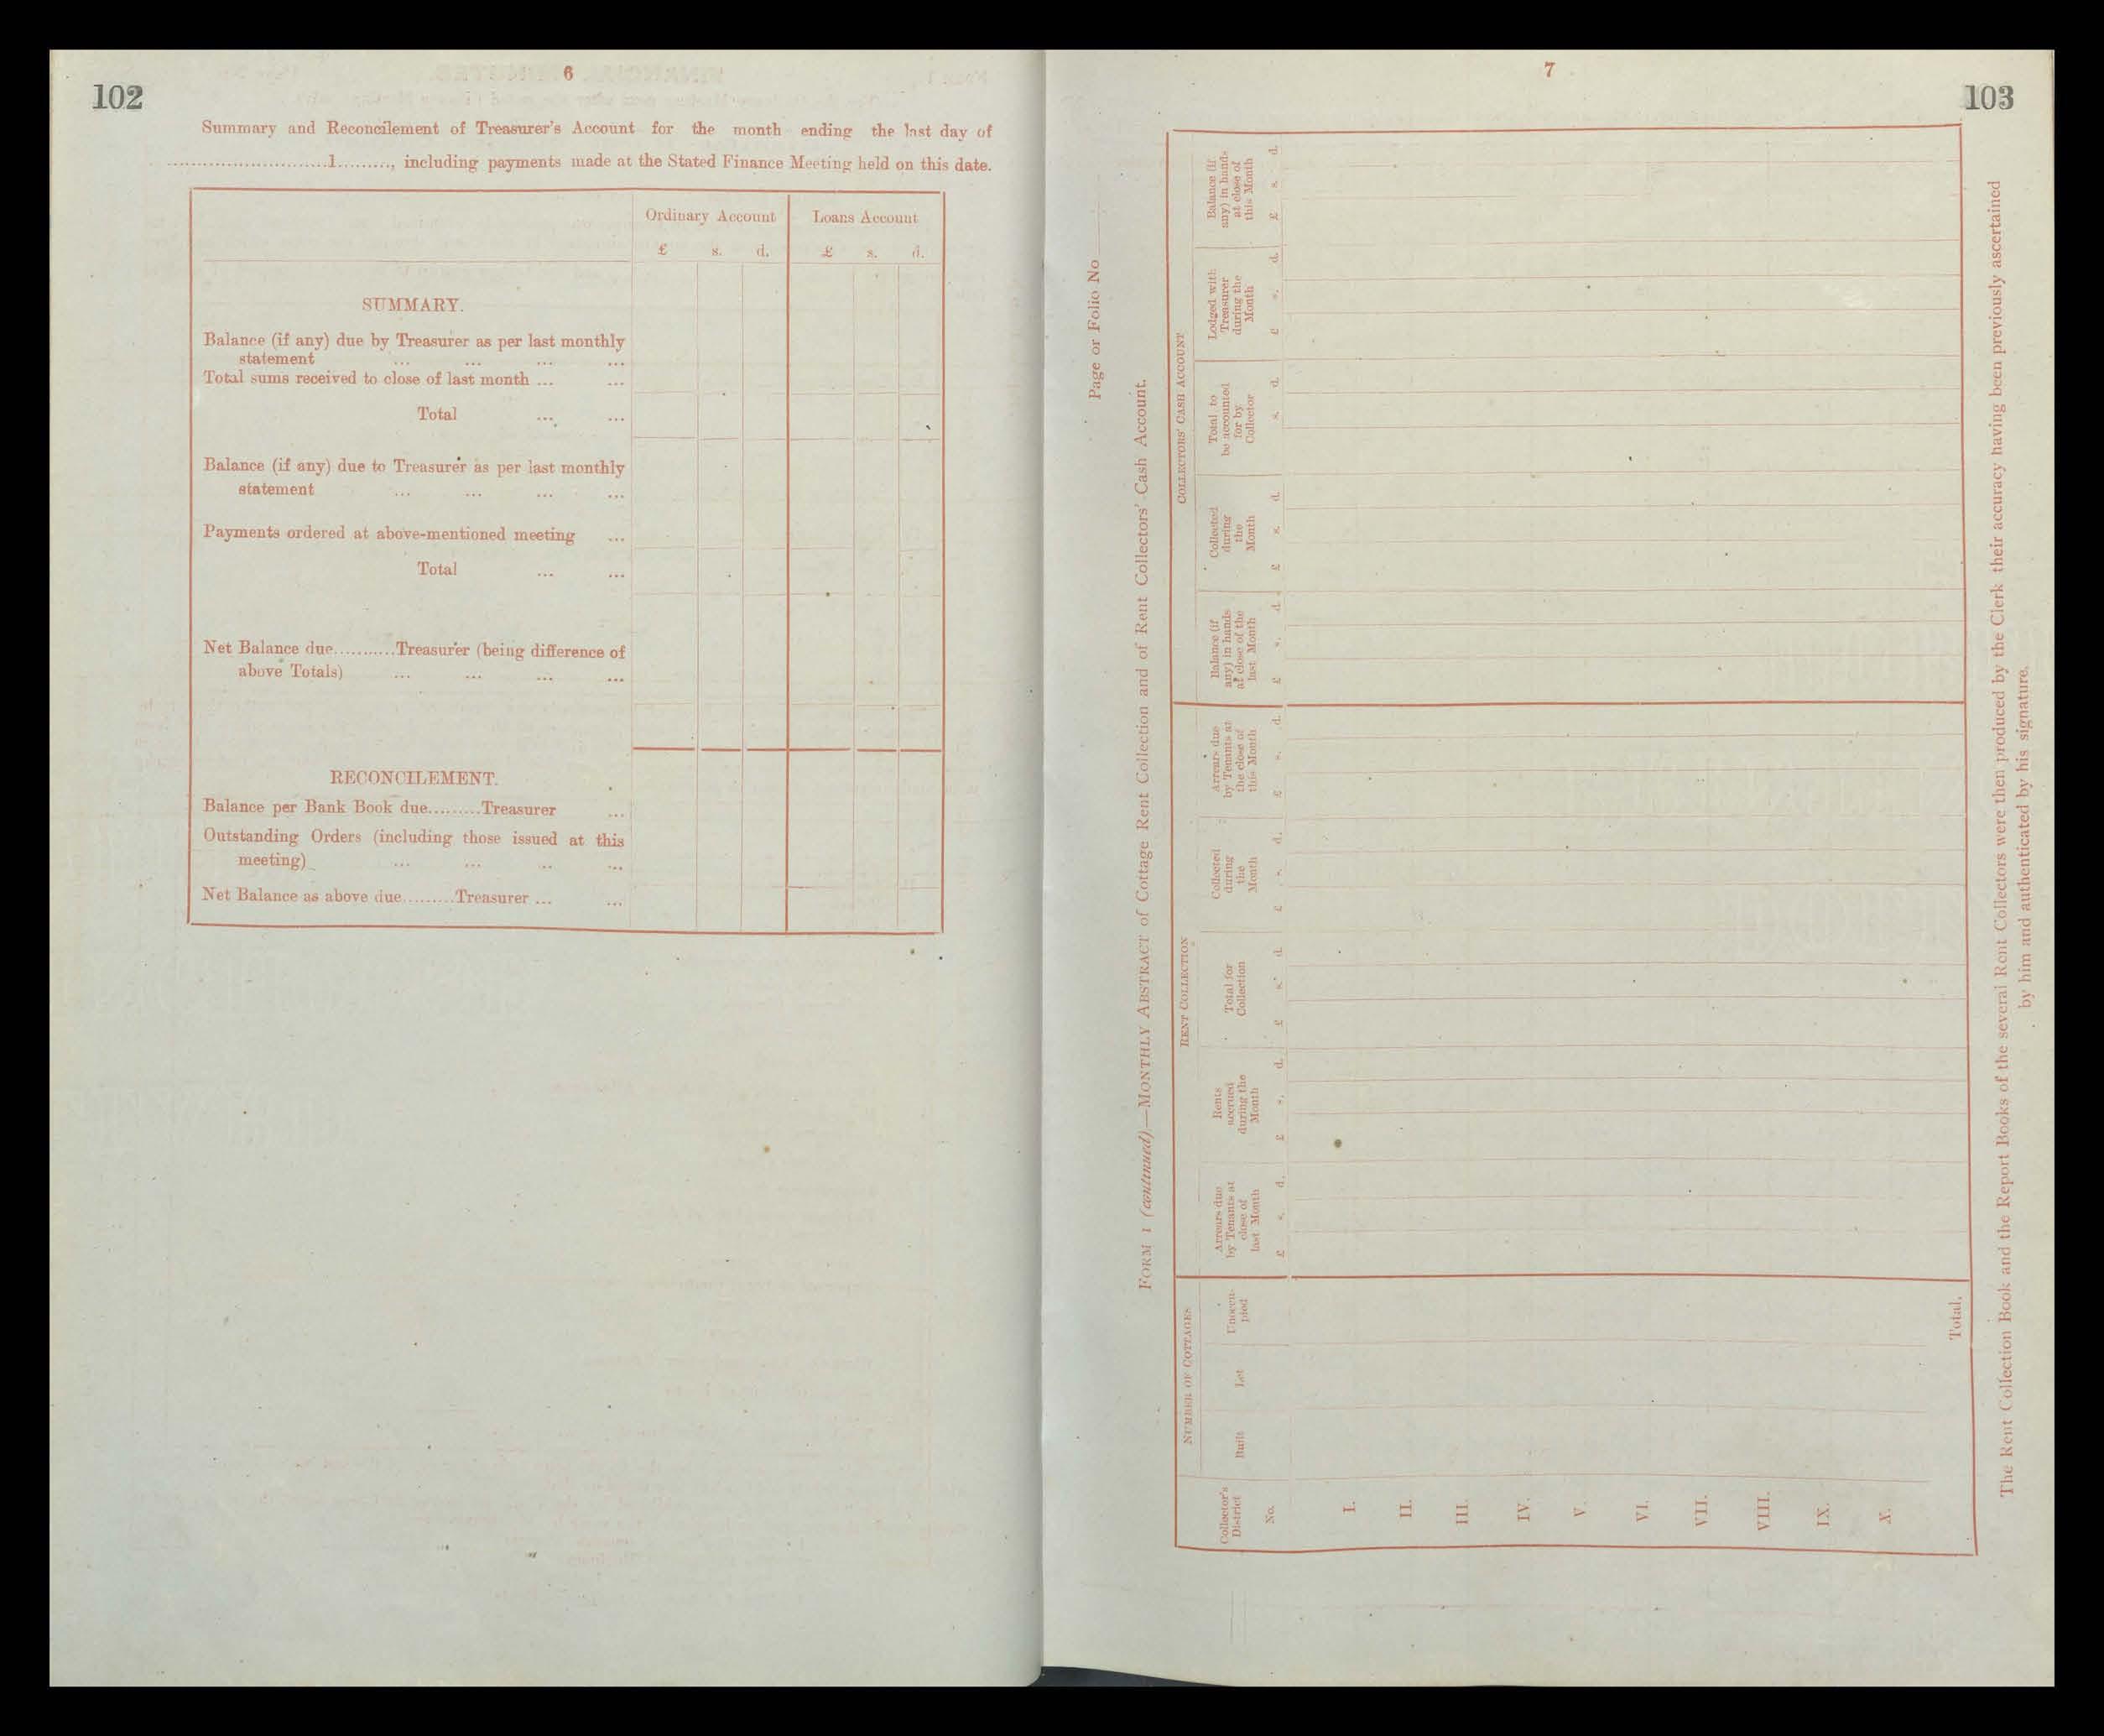 102
6
Summary and Reconcilement of Treasurer's Account for the month ending the last day of
............................1........., including payments made at the Stated Finance Meeting held on this date.
Ordinary Account
Loans Account
£ s. d.
£ s. d.
SUMMARY.
Balance (if any) due by Treasurer as per last monthly
statement ... ... ... ...
Total sums received to close of last month ... ...
Total ... ...
Balance (if any) due to Treasurer as per last monthly
statement ... ... ... ...
Payments ordered at above-mentioned meeting ...
Total ... ...
Net Balance due...........Treasurer (being difference of
above Totals) ... ... ... ...
RECONCILEMENT.
Balance per Bank Book due.........Treasurer ...
Outstanding Orders (including those issued at this
meeting) ... ... ... ...
Net Balance as above due.........Treasurer ... ...
7
103
Page or Folio No
FORM 1 (continued).—MONTHLY ABSTRACT of Cottage Rent Collection and of Rent Collectors' Cash Account.
NUMBER OF COTTAGES
RENT COLLECTION
COLLECTORS' CASH ACCOUNT
Collector's
District
No.
Built
Let
Unoccu-
pied
Arrears due
by Tenants at
close of
last Month
£ s. d.
Rents
accrued
during the
Month
£ s. d.
Total for
Collection
£ s. d.
Collected
during
the
Month
£ s. d.
Arrears due
by Tenants at
the close of
this Month
£ s. d.
Balance (if
any) in hands
at close of the
last Month
£ s. d.
Collected
during
the
Month
£ s. d.
Total to
be accounted
for by
Collector
s. d.
Lodged with
Treasurer
during the
Month
£ s. d.
Balance (if
any) in hands
at close of
this Month
£ s. d.
I.
II.
III.
IV.
V.
VI.
VII.
VIII.
IX.
X.
Total.
The Rent Collection Book and the Report Books of the several Rent Collectors were then produced by the Clerk their accuracy having been previously ascertained
by him and authenticated by his signature.